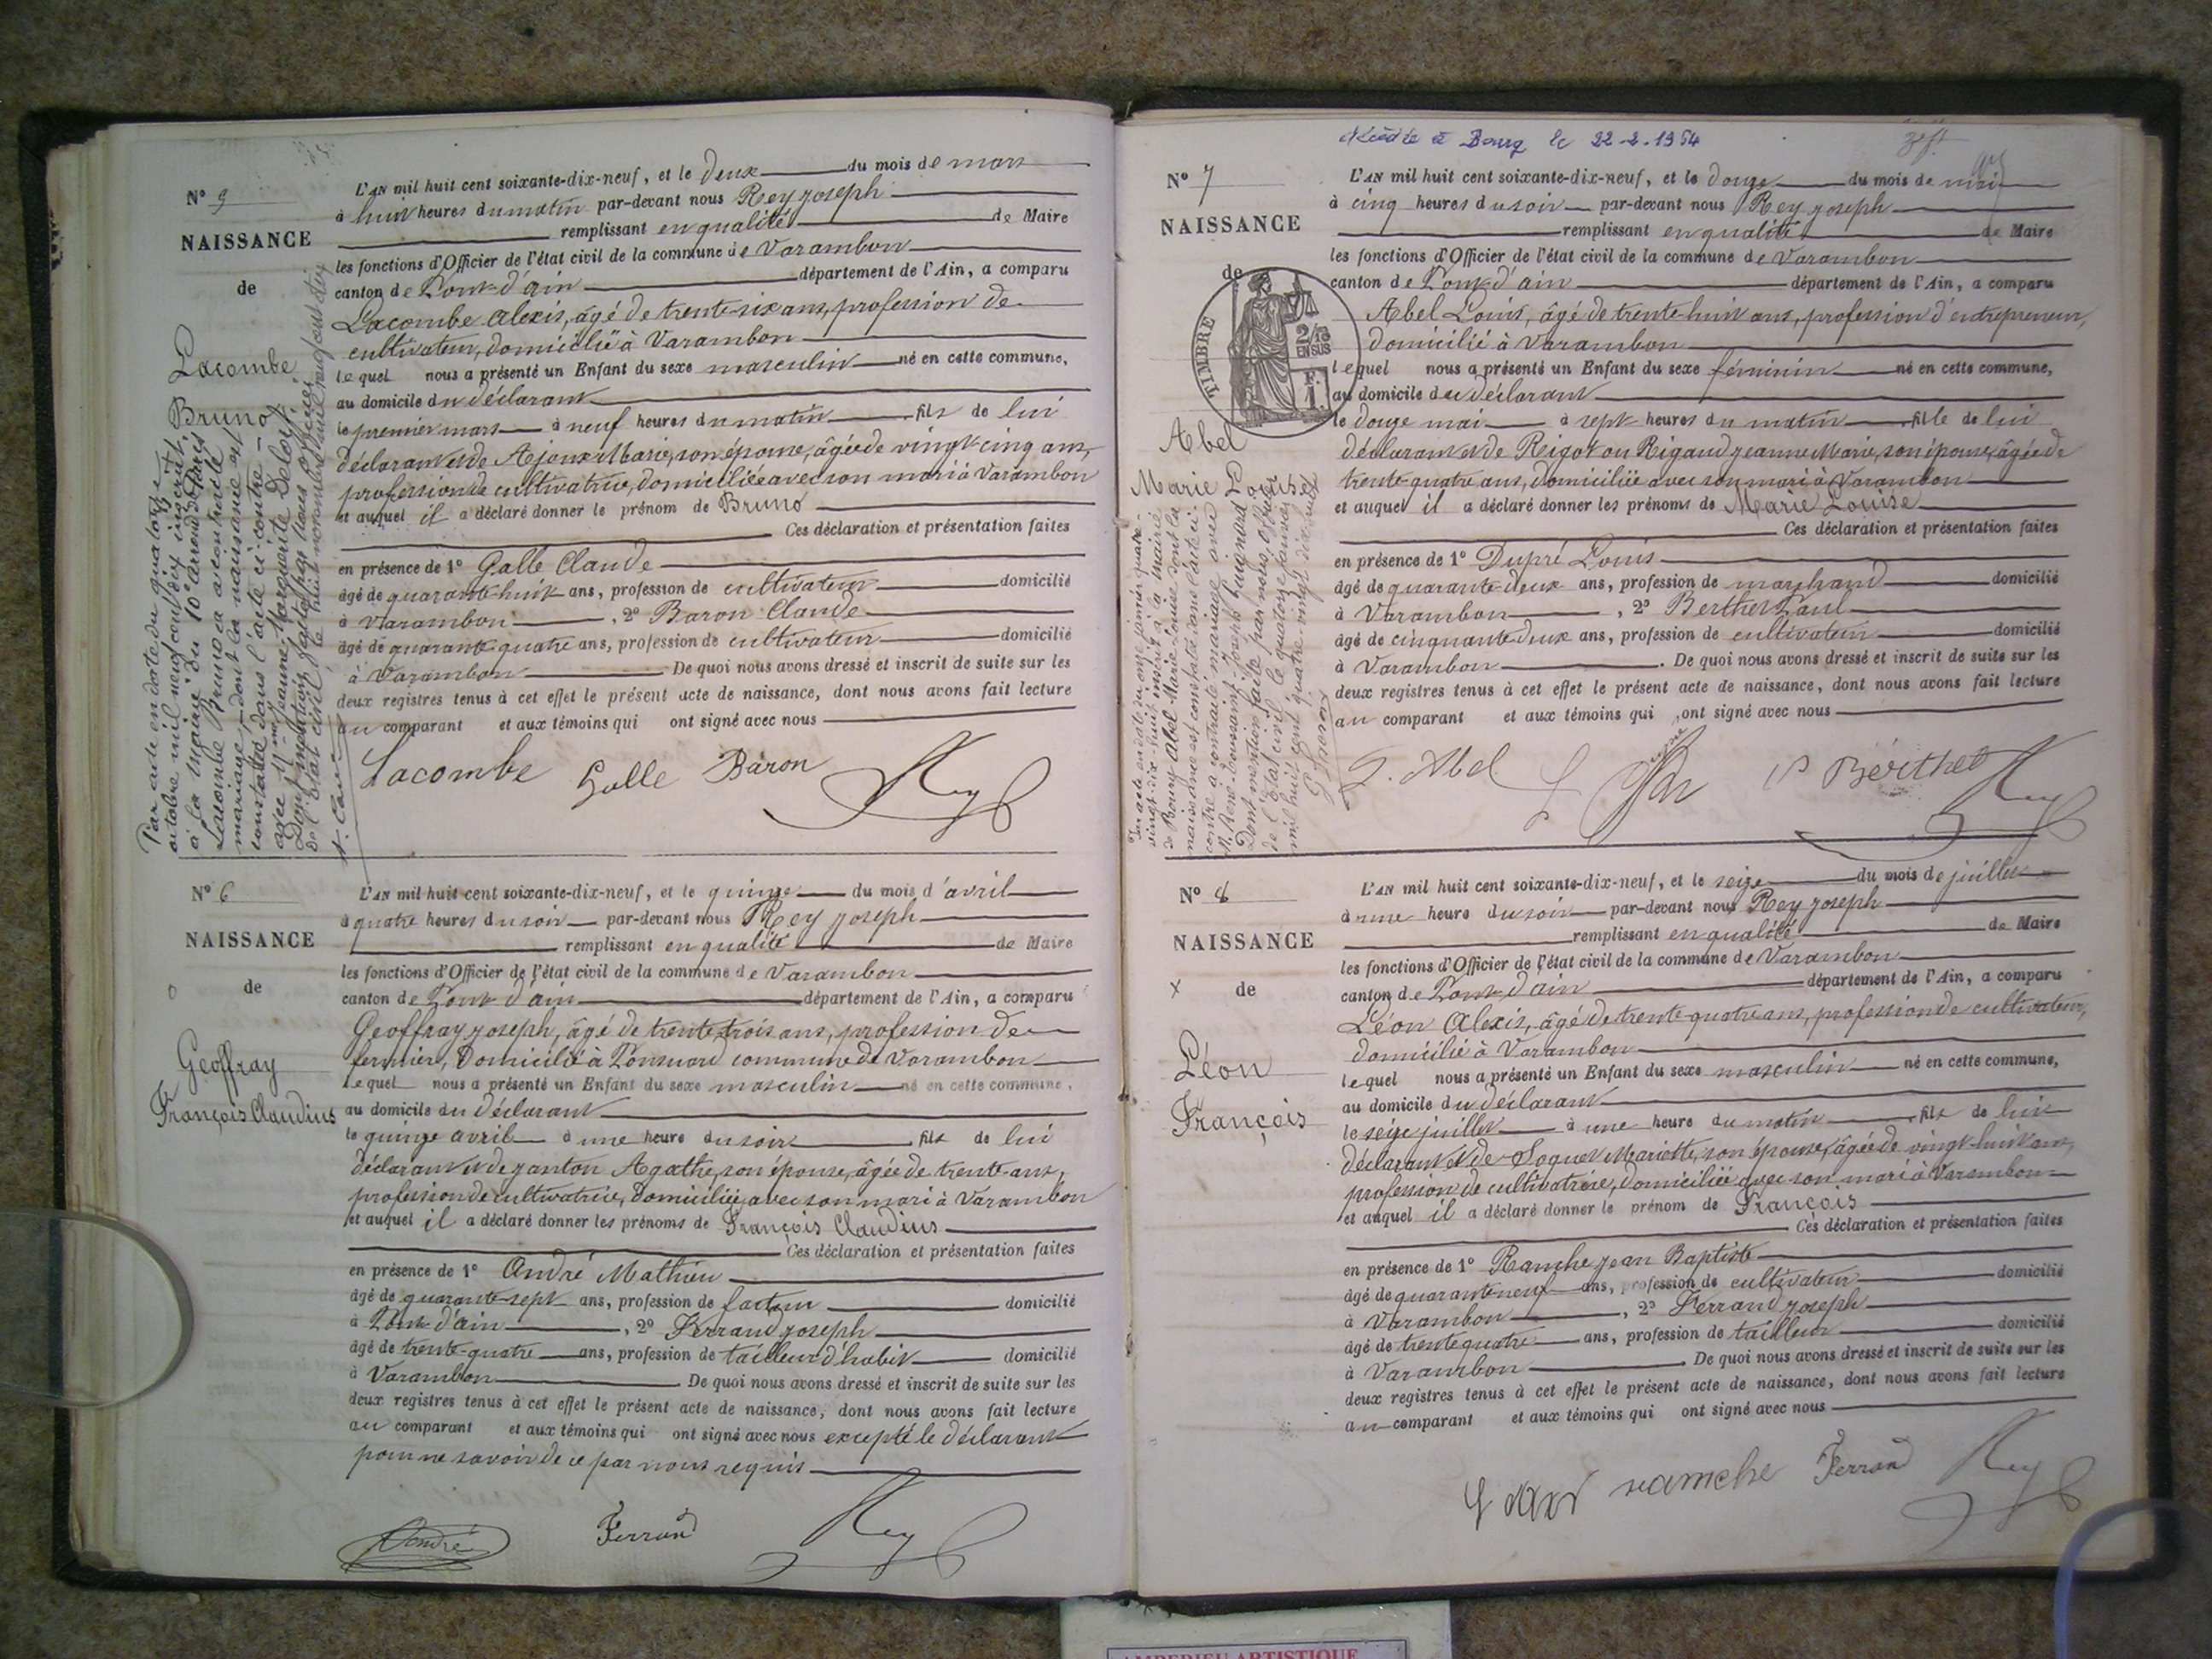 N° 5
NAISSANCE
de
Lacombe
Bruno
Par acte en date du quatorze
octobre mil neuf cent dix inscrit
à la Mairie du 10e arrond. de Paris
Lacombe Bruno a contracté
mariage, dont la naissance est
constatée dans l'acte ci-contre
avec Mlle Jeanne Marguerite
Dont mention faite par nous officier
de l'état civil, le huit novembre mil neuf cent dix
L'AN mil huit cent soixante-dix-neuf, et le deux du mois de mars
à huit heures du matin par-devant nous Rey Joseph
remplissant en qualité de Maire
les fonctions d'Officier de l'état civil de la commune de Varambon
canton de Pont-d'ain département de l'Ain, a comparu
Lacombe Alexis, âgé de trente-six ans, profession de
cultivateur, domicilié à Varambon
lequel nous a présenté un Enfant du sexe masculin né en cette commune,
au domicile du déclarant
le premier mars à neuf heures du matin fils de lui
déclarant et de Ajoux Marie, son épouse, âgée de vingt-cinq ans,
profession de cultivatrice, domiciliée avec son mari à Varambon
et auquel il a déclaré donner le prénom de Bruno
Ces déclaration et présentation faites
en présence de 1° Gallé Claude
âgé de quarante-huit ans, profession de cultivateur domicilié
à Varambon, 2° Baron Claude
âgé de quarante quatre ans, profession de cultivateur domicilié
à Varambon De quoi nous avons dressé et inscrit de suite sur les
deux registres tenus à cet effet le présent acte de naissance, dont nous avons fait lecture
au comparant et aux témoins qui ont signé avec nous
Lacombe Galle Baron Rey
N° 6
NAISSANCE
de
Geoffray
François Claudius
L'AN mil huit cent soixante-dix-neuf, et le quinze du mois d'avril
à quatre heures du soir par-devant nous Rey Joseph
remplissant en qualité de Maire
les fonctions d'Officier de l'état civil de la commune de Varambon
canton de Pont-d'ain département de l'Ain, a comparu
Geoffray Joseph, âgé de trente-trois ans, profession de
fermier, domicilié à commune de Varambon
lequel nous a présenté un Enfant du sexe masculin né en cette commune,
au domicile du déclarant
le quinze avril à une heure du soir fils de lui
déclarant et de Janton Agathe, son épouse, âgée de trente ans,
profession de cultivatrice, domiciliée avec son mari à Varambon
et auquel il a déclaré donner les prénoms de François Claudius
Ces déclaration et présentation faites
en présence de 1° André Mathieu
âgé de quarante-sept ans, profession de facteur domicilié
à Pont-d'ain, 2° Ferrand Joseph
âgé de trente-quatre ans, profession de tailleur d'habit domicilié
à Varambon De quoi nous avons dressé et inscrit de suite sur les
deux registres tenus à cet effet le présent acte de naissance, dont nous avons fait lecture
au comparant et aux témoins qui ont signé avec nous excepté le déclarant
pour ne savoir de ce par nous requis
André Ferrand Rey
décédée à Bourg le 22-2-1954
N° 7
NAISSANCE
de
TIMBRE
2/10
EN SUS
F.
1
Abel
Marie Louise
Par acte en date du onze janvier quatre-
vingt-dix-huit inscrit à la mairie
de Bourg Abel Marie Louise dont la
naissance est constatée dans l'acte ci-
contre a contracté mariage avec
Dont mention faite par nous, officier
de l'état civil le quatorze janvier
mil huit cent quatre vingt dix huit
L'AN mil huit cent soixante-dix-neuf, et le douze du mois de mai
à cinq heures du soir par-devant nous Rey Joseph
remplissant en qualité de Maire
les fonctions d'Officier de l'état civil de la commune de Varambon
canton de Pont-d'ain département de l'Ain, a comparu
Abel Louis, âgé de trente-huit ans, profession d'entrepreneur,
domicilié à Varambon
lequel nous a présenté un Enfant du sexe féminin né en cette commune,
au domicile du déclarant
le douze mai à sept heures du matin fille de lui
déclarant et de Rigot ou Rigaud Jeanne Marie, son épouse, âgée de
trente-quatre ans, domiciliée avec son mari à Varambon
et auquel il a déclaré donner les prénoms de Marie Louise
Ces déclaration et présentation faites
en présence de 1° Dupré Louis
âgé de quarante-deux ans, profession de marchand domicilié
à Varambon, 2° Berthet Paul
âgé de cinquante-deux ans, profession de cultivateur domicilié
à Varambon. De quoi nous avons dressé et inscrit de suite sur les
deux registres tenus à cet effet le présent acte de naissance, dont nous avons fait lecture
au comparant et aux témoins qui ont signé avec nous
L. Abel P Berthet Rey
N° 8
NAISSANCE
x de
Léon
François
L'AN mil huit cent soixante-dix-neuf, et le seize du mois de juillet
à une heure du soir par-devant nous Rey Joseph
remplissant en qualité de Maire
les fonctions d'Officier de l'état civil de la commune de Varambon
canton de Pont-d'ain département de l'Ain, a comparu
Léon Alexis, âgé de trente-quatre ans, profession de cultivateur,
domicilié à Varambon
lequel nous a présenté un Enfant du sexe masculin né en cette commune,
au domicile du déclarant
le seize juillet à une heure du matin fils de lui
déclarant et de Soquet Mariette, son épouse, âgée de vingt-huit ans,
profession de cultivatrice, domiciliée avec son mari à Varambon
et auquel il a déclaré donner le prénom de François
Ces déclaration et présentation faites
en présence de 1° Ranche Jean Baptiste
âgé de quarante-neuf ans, profession de cultivateur domicilié
à Varambon, 2° Ferrand Joseph
âgé de trente quatre ans, profession de tailleur domicilié
à Varambon. De quoi nous avons dressé et inscrit de suite sur les
deux registres tenus à cet effet le présent acte de naissance, dont nous avons fait lecture
au comparant et aux témoins qui ont signé avec nous
ranche Ferrand Rey
AMBERIEU ARTISTIQUE